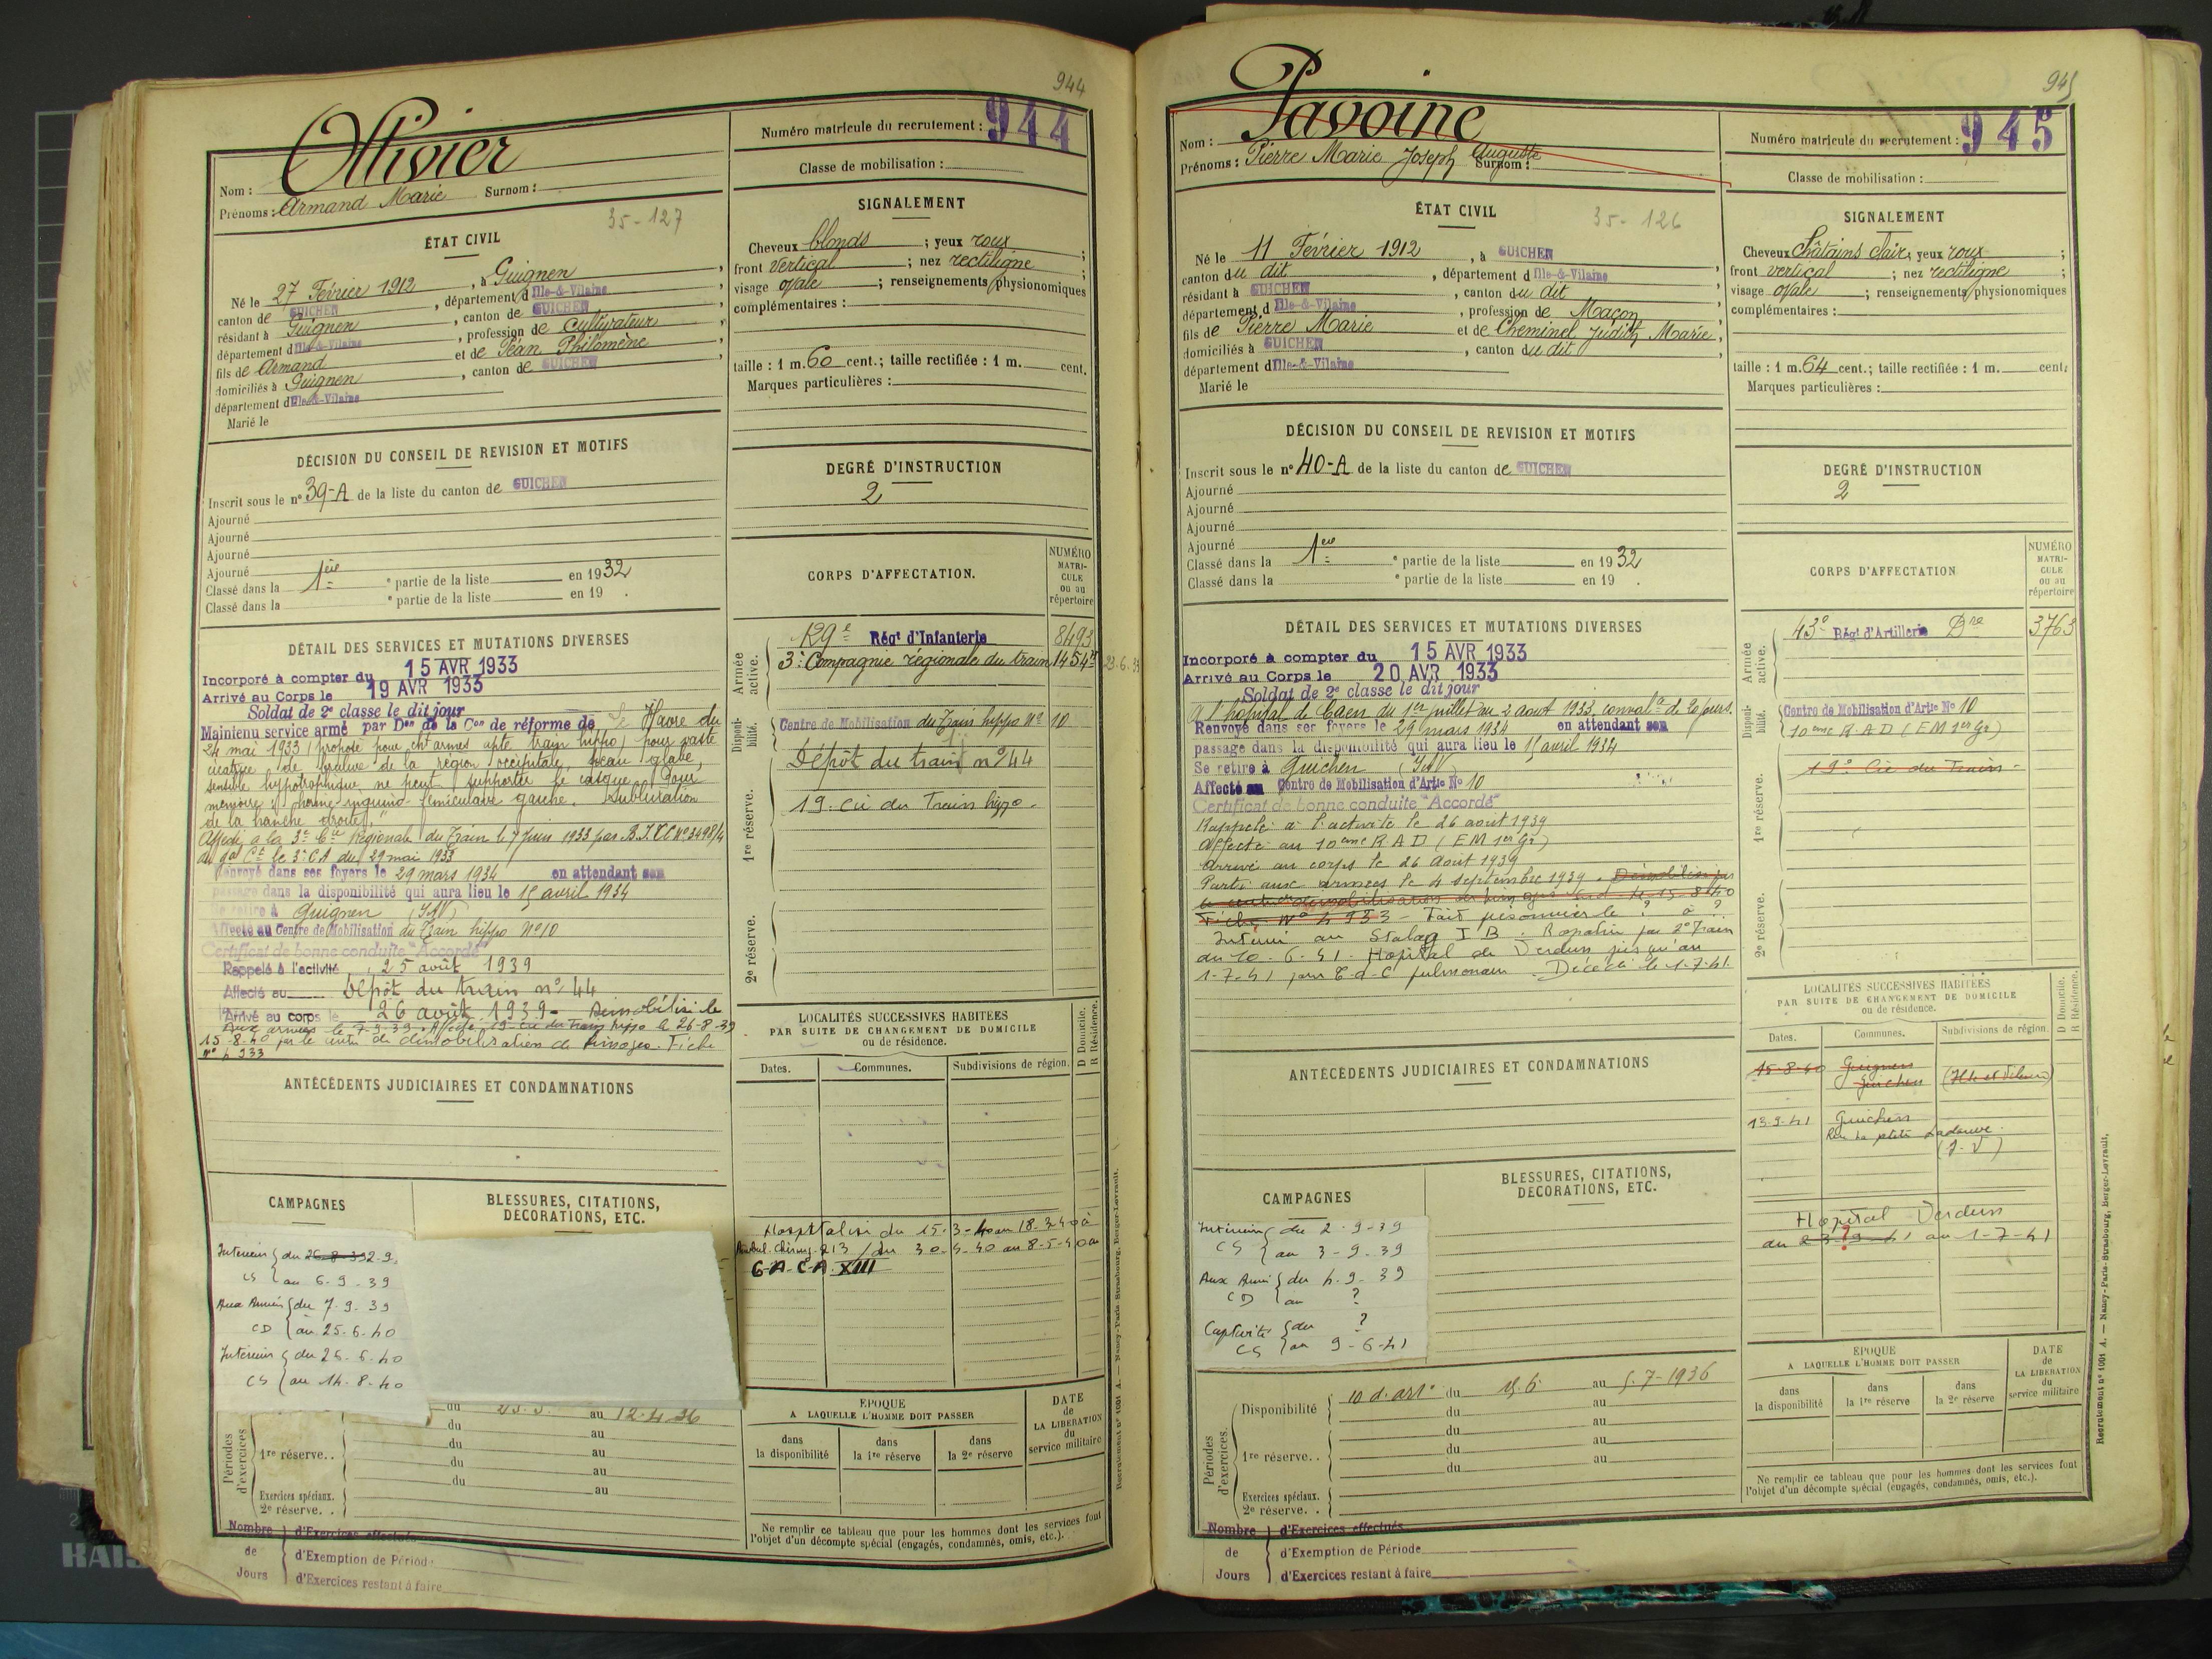 944
Ollivier
Nom :
Prénoms : Armand Marie Surnom :
Numéro matricule du recrutement : 944
Classe de mobilisation :
35-127
ÉTAT CIVIL
Né le 27 Février 1912, à Guignen,
canton de GUICHEN, département d'Ille-&-Vilaine,
résidant à Guignen, canton de GUICHEN,
département d'Ille-&-Vilaine, profession de Cultivateur
fils de Armand et de Péan Philomène,
domiciliés à Guignen, canton de GUICHEN,
département d'Ille-&-Vilaine
Marié le
SIGNALEMENT
Cheveux blonds ; yeux roux ;
front vertical ; nez rectiligne ;
visage ovale ; renseignements physionomiques
complémentaires :
taille : 1 m. 60 cent.; taille rectifiée : 1 m. cent.
Marques particulières :
DÉCISION DU CONSEIL DE REVISION ET MOTIFS
Inscrit sous le n° 39-A de la liste du canton de GUICHEN
Ajourné
Ajourné
Ajourné
Ajourné
Classé dans la 1ère partie de la liste en 1932
Classé dans la e partie de la liste en 19 .
DEGRÉ D'INSTRUCTION
2
DÉTAIL DES SERVICES ET MUTATIONS DIVERSES
Incorporé à compter du 15 AVR 1933
Arrivé au Corps le 19 AVR 1933
Soldat de 2e classe le dit jour
Maintenu service armé par Don de la Con de réforme de Le Havre du
24 mai 1933 (proposé pour cht armes apte train hippo) pour vaste
cicatrice de brulure de la région occipitale, peau glabre,
sensible hypotrophique, ne peut supporter le casque. Pour
mémoire 1) hernie inguino-funiculaire gauche. Subluxation
de la hanche droite)."
Affecté à la 3e Cie Régionale du Train le 7 Juin 1933 par B.I.
du gal Ct le 3e C.A du 29 mai 1933
Renvoyé dans ses foyers le 29 mars 1934 en attendant son
passage dans la disponibilité qui aura lieu le 15 avril 1934
Se retire à Guignen (I&V)
Affecté au Centre de Mobilisation du Train hippo N° 10
Certificat de bonne conduite "Accordé"
Rappelé à l'activité 25 août 1939
Affecté au Dépôt du train n° 44
Arrivé au corps le 26 août 1939 - Démobilisé le
Aux armées le 7-9-39. Affecté 19 cie du Train hippo le 26-8-39
15-8-40 par le centre de démobilisation de Limoges. Fiche
n° 4 933
CORPS D'AFFECTATION.
NUMÉRO MATRICULE ou au répertoire
Armée active.
129e Régt d'Infanterie 8493
3e Compagnie régionale du train 1454 23.6.33
Disponibilité.
Centre de Mobilisation du Train hippo N° 10
Dépôt du train n° 44
1re réserve.
19. Cie du Train hippo -
2e réserve.
ANTÉCÉDENTS JUDICIAIRES ET CONDAMNATIONS
LOCALITÉS SUCCESSIVES HABITÉES
PAR SUITE DE CHANGEMENT DE DOMICILE
ou de résidence.
Dates. Communes. Subdivisions de région. D Domicile. R Résidence.
Hospitalisé du 15-3-40 au 18-3-40 à
Ambul. Chirurg. 213 / du 30-4-40 au 8-5-40 au
G-A-C-A- XIII
CAMPAGNES
Intérieur du 26-8-39 2-9.
CS au 6-9-39
Aux Armées du 7-9-39
CD au 25-6-40
Intérieur du 26-6-40
CS au 14-8-40
BLESSURES, CITATIONS,
DÉCORATIONS, ETC.
Périodes d'exercices.
du au 12.4.36
du au
1re réserve.. du au
du au
du au
Exercices spéciaux.
2e réserve. .
Nombre de Jours
d'Exercices effectués
d'Exemption de Période
d'Exercices restant à faire
ÉPOQUE
A LAQUELLE L'HOMME DOIT PASSER
dans la disponibilité
dans la 1re réserve
dans la 2e réserve
DATE de LA LIBÉRATION du service militaire
Ne remplir ce tableau que pour les hommes dont les services font
l'objet d'un décompte spécial (engagés, condamnés, omis, etc.).
Recrutement n° 1001 A. — Nancy-Paris-Strasbourg, Berger-Levrault.
945
Pavoine
Nom :
Prénoms : Pierre Marie Joseph Auguste Surnom :
Numéro matricule du recrutement : 945
Classe de mobilisation :
35-126
ÉTAT CIVIL
Né le 11 Février 1912, à GUICHEN
canton du dit, département d'Ille-&-Vilaine,
résidant à GUICHEN, canton du dit
département d'Ille-&-Vilaine, profession de Maçon
fils de Pierre Marie et de Cheminel Judith Marie,
domiciliés à GUICHEN, canton du dit
département d'Ille-&-Vilaine
Marié le
SIGNALEMENT
Cheveux Châtains clair; yeux roux ;
front vertical ; nez rectiligne ;
visage ovale ; renseignements physionomiques
complémentaires :
taille : 1 m. 64 cent.; taille rectifiée : 1 m. cent.
Marques particulières :
DÉCISION DU CONSEIL DE REVISION ET MOTIFS
Inscrit sous le n° 40-A de la liste du canton de GUICHEN
Ajourné
Ajourné
Ajourné
Ajourné
Classé dans la 1ere partie de la liste en 1932
Classé dans la e partie de la liste en 19 .
DEGRÉ D'INSTRUCTION
2
DÉTAIL DES SERVICES ET MUTATIONS DIVERSES
Incorporé à compter du 15 AVR 1933
Arrivé au Corps le 20 AVR 1933
Soldat de 2e classe le dit jour
A l'hôpital de Caen du 1er juillet au 2 août 1933, conval. de 20 jours.
Renvoyé dans ses foyers le 29 mars 1934 en attendant son
passage dans la disponibilité qui aura lieu le 15 avril 1934
Se retire à Guichen (I&V)
Affecté au Centre de Mobilisation d'Artie N° 10
Certificat de bonne conduite "Accordé"
Rappelé à l'activité le 26 août 1939
Affecté au 10eme R.A.D (EM 1er Gr)
Arrivé au corps le 26 Août 1939
Parti aux armées le 4 septembre 1939. Démobilisé par
le centre démobilisation de Limoges le 15-8-40
Fiche N° 4 933 - Fait prisonnier le ? à ?
Interné au Stalag I B. Rapatrié par 2e Train
du 10.6.41. Hôpital de Verdun jusqu'au
1-7-41 pour pulmonaire. Décédé le 1-7-41.
CORPS D'AFFECTATION
NUMÉRO MATRICULE ou au répertoire
Armée active.
43e Régt d'Artillerie Dre 3763
Disponibilité.
Centre de Mobilisation d'Artie N° 10
10eme R.A.D (EM 1er Gr)
1re réserve.
19e Cie du Train -
2e réserve.
ANTÉCÉDENTS JUDICIAIRES ET CONDAMNATIONS
LOCALITÉS SUCCESSIVES HABITÉES
PAR SUITE DE CHANGEMENT DE DOMICILE
ou de résidence.
Dates. Communes. Subdivisions de région. D Domicile. R Résidence.
15-8-40 Guignen
Guichen (Ille et Vilaine)
13.9.41 Guichen
(I-V)
Hopital Verdun
du 23-9-41 ? au 1-7-41
CAMPAGNES
Intérieur du 2-9-39
CS au 3-9-39
Aux Armées du 4-9-39
CD au ?
Captivité du ?
CS au 9-6-41
BLESSURES, CITATIONS,
DÉCORATIONS, ETC.
Périodes d'exercices.
Disponibilité 10 d. artie du 15.6 au 5-7-1936
du au
du au
1re réserve.. du au
du au
Exercices spéciaux.
2e réserve. .
Nombre de Jours
d'Exercices effectués
d'Exemption de Période
d'Exercices restant à faire
ÉPOQUE
A LAQUELLE L'HOMME DOIT PASSER
dans la disponibilité
dans la 1re réserve
dans la 2e réserve
DATE de LA LIBÉRATION du service militaire
Ne remplir ce tableau que pour les hommes dont les services font
l'objet d'un décompte spécial (engagés, condamnés, omis, etc.).
Recrutement n° 1001 A. — Nancy-Paris-Strasbourg, Berger-Levrault.